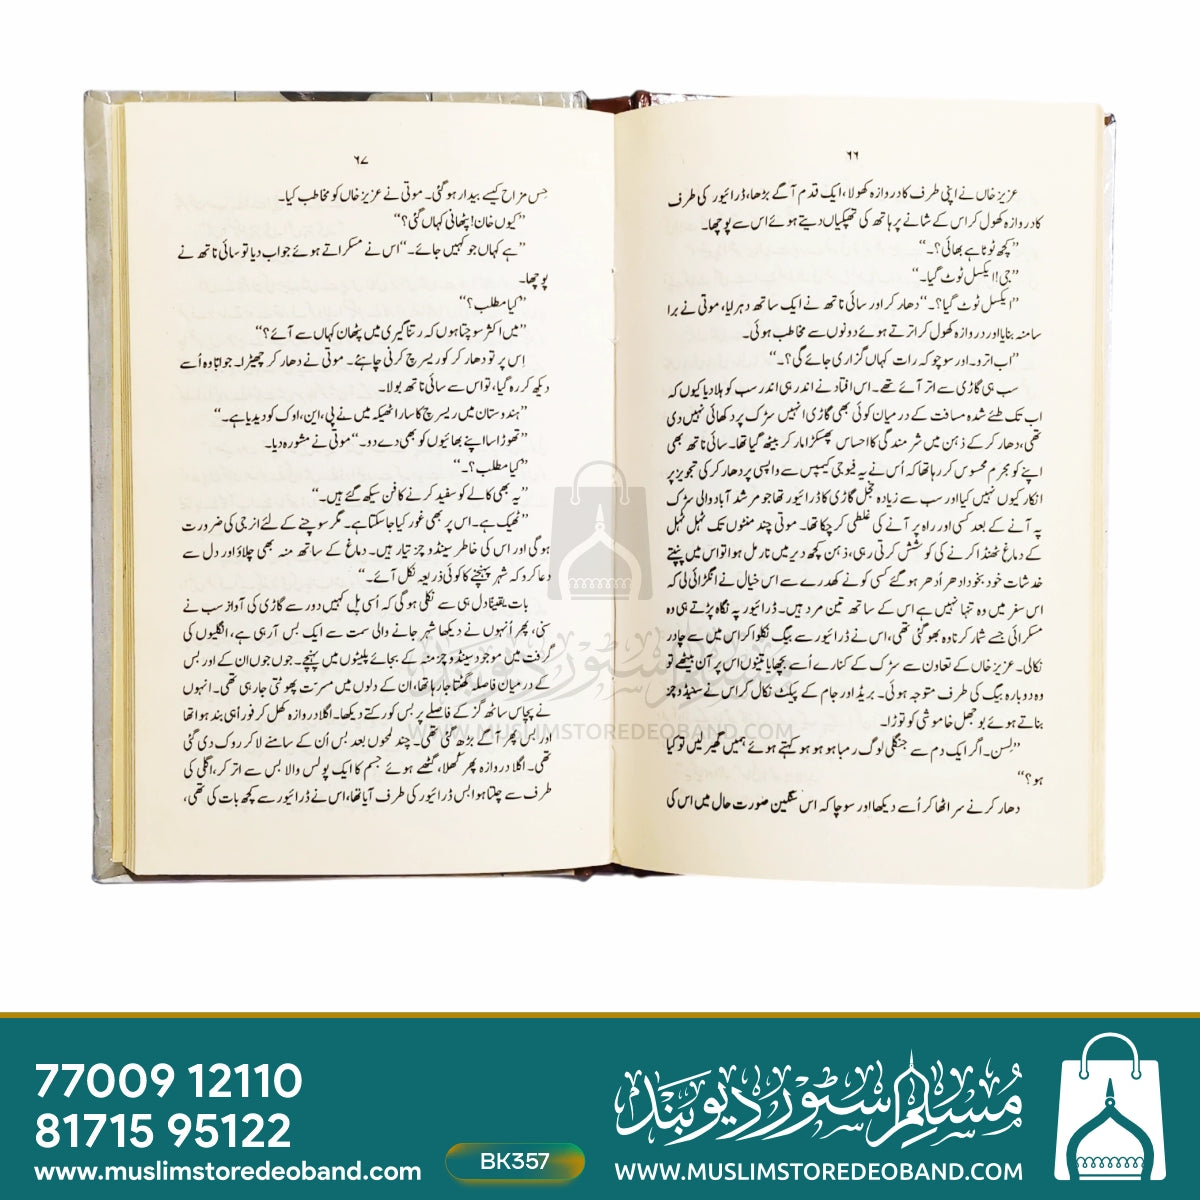 ۶۶
عزیز خاں نے اپنی طرف کا دروازہ کھولا، ایک قدم آگے بڑھا، ڈرائیور کی طرف
کا دروازہ کھول کر اس کے شانے پر ہاتھ کی تھپکیاں دیتے ہوئے اس سے پوچھا۔
”کچھ ٹوٹا ہے بھائی؟۔“
”جی! ایکسل ٹوٹ گیا۔“
”ایکسل ٹوٹ گیا؟۔“ دھار کر اور سائی ناتھ نے ایک ساتھ دہرایا، موتی نے برا
سا منہ بنایا اور دروازہ کھول کر اترتے ہوئے دونوں سے مخاطب ہوئی۔
”اب اترو۔ اور سوچو کہ رات کہاں گزاری جائے گی؟۔“
سب ہی گاڑی سے اتر آئے تھے۔ اس افتاد نے اندر ہی اندر سب کو ہلا دیا کیوں کہ
اب تک طئے شدہ مسافت کے درمیان کوئی بھی گاڑی انہیں سڑک پر دکھائی نہیں دی
تھی، دھار کر کے ذہن میں شرمندگی کا احساس پھسکڑا مار کر بیٹھ گیا تھا۔ سائی ناتھ بھی
اپنے کو مجرم محسوس کر رہا تھا کہ اُس نے یہ فیوجی کیمپس سے واپسی پر دھار کر کی تجویز پر
انکار کیوں نہیں کیا اور سب سے زیادہ خجل گاڑی کا ڈرائیور تھا جو مرشد آباد والی سڑک
پہ آنے کے بعد کسی اور راہ پر آنے کی غلطی کر چکا تھا۔ موتی چند منٹوں تک ٹہل ٹہل
کے دماغ ٹھنڈا کرنے کی کوشش کرتی رہی، ذہن کچھ دیر میں نارمل ہوا تو اس میں پنپتے
خدشات خود بخود ادھر اُدھر ہو گئے کسی کونے کھدرے سے اس خیال نے انگڑائی لی کہ
اس سفر میں وہ تنہا نہیں ہے اس کے ساتھ تین مرد ہیں۔ ڈرائیور پہ نگاہ پڑتے ہی وہ
مسکرائی جسے شمار کرنا وہ بھو گئی تھی، اس نے ڈرائیور سے بیگ نکلوا کر اس میں سے چادر
نکالی۔ عزیز خاں کے تعاون سے سڑک کے کنارے اُسے بچھایا تینوں اس پر آن بیٹھے تو
وہ دوبارہ بیگ کی طرف متوجہ ہوئی۔ بریڈ اور جام کے پیکٹ نکال کر اس نے سنیڈوچز
بناتے ہوئے بوجھل خاموشی کو توڑا۔
”لِسن۔ اگر ایک دم سے جنگلی لوگ رمبا ہو ہو ہو کہتے ہوئے ہمیں گھیر لیں تو کیا
ہو؟“
دھار کر نے سر اٹھا کر اُسے دیکھا اور سوچا کہ اس سنگین صورت حال میں اس کی
۶۷
حِس مزاح کیسے بیدار ہو گئی۔ موتی نے عزیز خاں کو مخاطب کیا۔
”کیوں خان! پٹھانی کہاں گئی؟“
”ہے کہاں جو کہیں جائے۔“ اس نے مسکراتے ہوئے جواب دیا تو سائی ناتھ نے
پوچھا۔
”کیا مطلب؟“
”میں اکثر سوچتا ہوں کہ رتناگیری میں پٹھان کہاں سے آئے؟“
اِس پر تو دھار کر کو ریسرچ کرنی چاہئے۔ موتی نے دھار کر چھیڑا۔ جواباً وہ اُسے
دیکھ کر رہ گیا، تو اس سے سائی ناتھ بولا۔
”ہندوستان میں ریسرچ کا سارا ٹھیکہ میں نے پی، این، اوک کو دیدیا ہے۔“
”تھوڑا سا اپنے بھائیوں کو بھی دے دو۔“ موتی نے مشورہ دیا۔
”کیا مطلب؟۔“
”یہ بھی کالے کو سفید کرنے کا فن سیکھ گئے ہیں۔“
”ٹھیک ہے۔ اس پر بھی غور کیا جا سکتا ہے۔ مگر سوچنے کے لئے انرجی کی ضرورت
ہوگی اور اس کی خاطر سینڈوچز تیار ہیں۔ دماغ کے ساتھ منہ بھی چلاؤ اور دل سے
دعا کرو کہ شہر پہنچنے کا کوئی ذریعہ نکل آئے۔“
بات یقیناً دل ہی سے نکلی ہوگی کہ اُسی پل کہیں دور سے گاڑی کی آواز سب نے
سنی، پھر اُنہوں نے دیکھا شہر جانے والی سمت سے ایک بس آ رہی ہے، انگلیوں کی
گرفت میں موجود سینڈوچز منہ کے بجائے پلیٹوں میں پہنچے۔ جوں جوں ان کے اور بس
کے درمیان فاصلہ گھٹتا جا رہا تھا، ان کے دلوں میں مسرت پھوٹتی جا رہی تھی۔ انہوں
نے پچاس ساٹھ گز کے فاصلے پر بس کو رکتے دیکھا۔ اگلا دروازہ کھل کر فوراً ہی بند ہوا تھا
اور بس پھر آگے بڑھ گئی تھی۔ چند لمحوں بعد بس اُن کے سامنے لا کر روک دی گئی
تھی۔ اگلا دروازہ پھر کُھلا، گٹھے ہوئے جسم کا ایک پولس والا بس سے اتر کر، اگلی کی
طرف سے چلتا ہوا بس ڈرائیور کی طرف آیا تھا، اس نے ڈرائیور سے کچھ بات کی تھی،
مسلم سٹور دیوبند
WWW.MUSLIMSTOREDEOBAND.COM
77009 12110
81715 95122
www.muslimstoredeoband.com
BK357
مسلم سٹور دیوبند
WWW.MUSLIMSTOREDEOBAND.COM